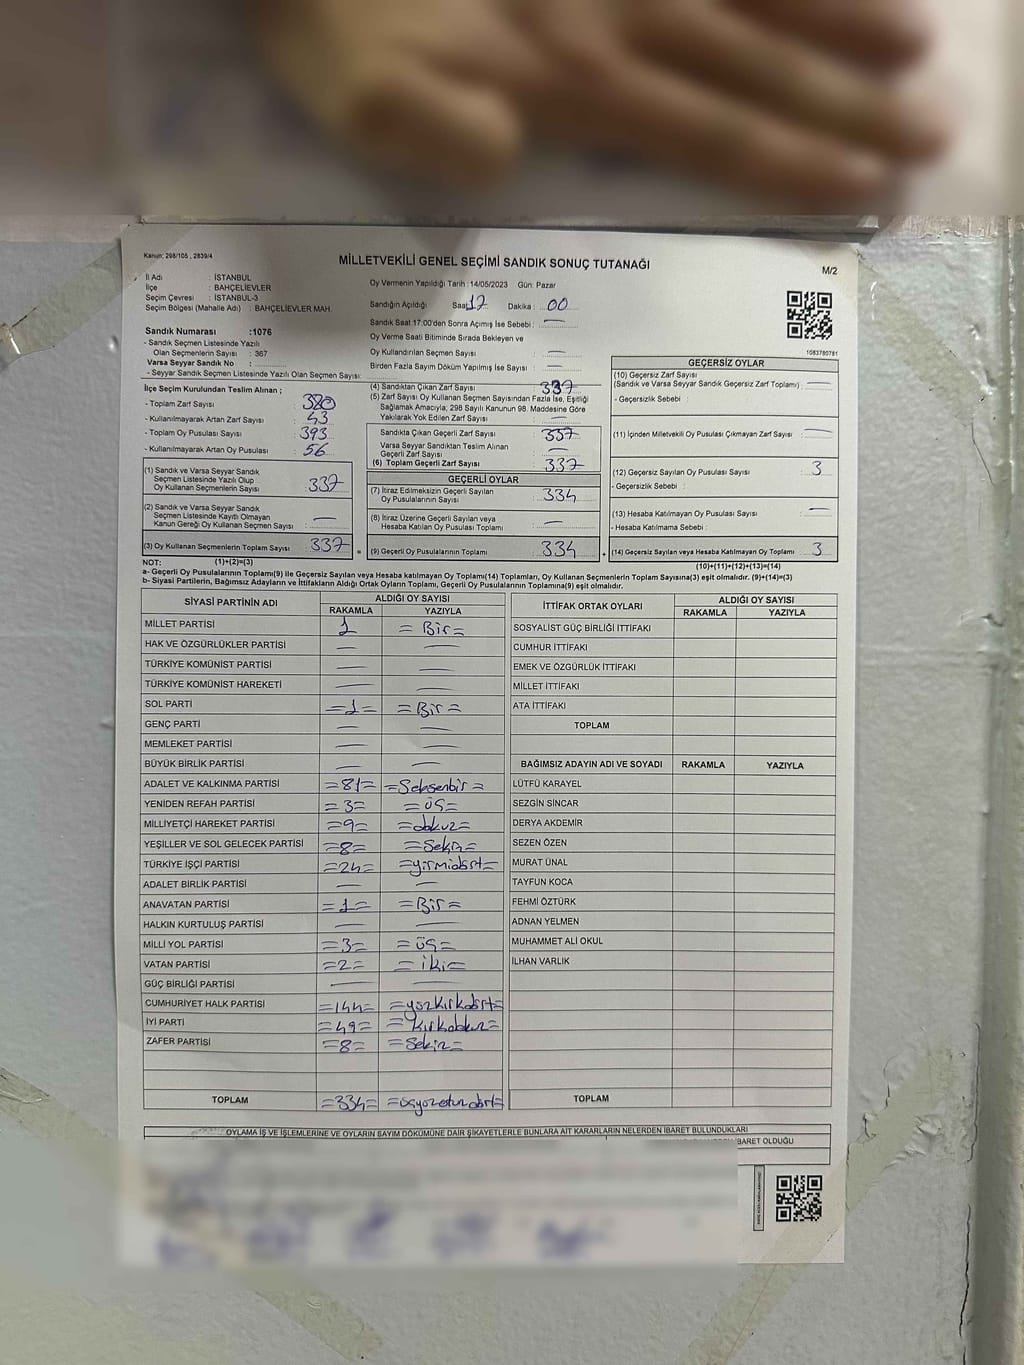 Kanun; 298/105 , 2839/4
MİLLETVEKİLİ GENEL SEÇİMİ SANDIK SONUÇ TUTANAĞI
M/2
İl Adı : İSTANBUL
İlçe : BAHÇELİEVLER
Seçim Çevresi : İSTANBUL-3
Seçim Bölgesi (Mahalle Adı) : BAHÇELİEVLER MAH.
Oy Vermenin Yapıldığı Tarih : 14/05/2023 Gün: Pazar
Sandığın Açıldığı Saat 17 Dakika : 00
Sandık Saat 17:00'den Sonra Açımış İse Sebebi : —
Oy Verme Saati Bitiminde Sırada Bekleyen ve
Oy Kullandırılan Seçmen Sayısı —
Birden Fazla Sayım Döküm Yapılmış İse Sayısı : —
1083780781
Sandık Numarası :1076
- Sandık Seçmen Listesinde Yazılı
Olan Seçmenlerin Sayısı : 367
Varsa Seyyar Sandık No :
- Seyyar Sandık Seçmen Listesinde Yazılı Olan Seçmen Sayısı:
İlçe Seçim Kurulundan Teslim Alınan ;
- Toplam Zarf Sayısı : 380
- Kullanılmayarak Artan Zarf Sayısı : 43
- Toplam Oy Pusulası Sayısı : 393
- Kullanılmayarak Artan Oy Pusulası : 56
(1) Sandık ve Varsa Seyyar Sandık
Seçmen Listesinde Yazılı Olup
Oy Kullanan Seçmenlerin Sayısı : 337
(2) Sandık ve Varsa Seyyar Sandık
Seçmen Listesinde Kayıtlı Olmayan
Kanun Gereği Oy Kullanan Seçmen Sayısı : —
(3) Oy Kullanan Seçmenlerin Toplam Sayısı : 337
(1)+(2)=(3)
(4) Sandıktan Çıkan Zarf Sayısı 337
(5) Zarf Sayısı Oy Kullanan Seçmen Sayısından Fazla İse, Eşitliği
Sağlamak Amacıyla; 298 Sayılı Kanunun 98. Maddesine Göre
Yakılarak Yok Edilen Zarf Sayısı : —
Sandıkta Çıkan Geçerli Zarf Sayısı : 337
Varsa Seyyar Sandıktan Teslim Alınan
Geçerli Zarf Sayısı : —
(6) Toplam Geçerli Zarf Sayısı : 337
GEÇERLİ OYLAR
(7) İtiraz Edilmeksizin Geçerli Sayılan
Oy Pusulalarının Sayısı : 334
(8) İtiraz Üzerine Geçerli Sayılan veya
Hesaba Katılan Oy Pusulası Toplamı : —
(9) Geçerli Oy Pusulalarının Toplamı : 334
GEÇERSİZ OYLAR
(10) Geçersiz Zarf Sayısı
(Sandık ve Varsa Seyyar Sandık Geçersiz Zarf Toplamı) : —
- Geçersizlik Sebebi :
(11) İçinden Milletvekili Oy Pusulası Çıkmayan Zarf Sayısı : —
(12) Geçersiz Sayılan Oy Pusulası Sayısı : 3
- Geçersizlik Sebebi :
(13) Hesaba Katılmayan Oy Pusulası Sayısı : —
- Hesaba Katılmama Sebebi :
(14) Geçersiz Sayılan veya Hesaba Katılmayan Oy Toplamı : 3
(10)+(11)+(12)+(13)=(14)
NOT:
a- Geçerli Oy Pusulalarının Toplamı(9) ile Geçersiz Sayılan veya Hesaba katılmayan Oy Toplamı(14) Toplamları, Oy Kullanan Seçmenlerin Toplam Sayısına(3) eşit olmalıdır. (9)+(14)=(3)
b- Siyasi Partilerin, Bağımsız Adayların ve İttifakların Aldığı Ortak Oyların Toplamı, Geçerli Oy Pusulalarının Toplamına(9) eşit olmalıdır.
SİYASİ PARTİNİN ADI ALDIĞI OY SAYISI
RAKAMLA YAZIYLA
MİLLET PARTİSİ 1 = Bir =
HAK VE ÖZGÜRLÜKLER PARTİSİ — —
TÜRKİYE KOMÜNİST PARTİSİ — —
TÜRKİYE KOMÜNİST HAREKETİ — —
SOL PARTİ =1= =Bir =
GENÇ PARTİ — —
MEMLEKET PARTİSİ — —
BÜYÜK BİRLİK PARTİSİ — —
ADALET VE KALKINMA PARTİSİ =81= =Seksenbir =
YENİDEN REFAH PARTİSİ =3= =üç=
MİLLİYETÇİ HAREKET PARTİSİ =9= =dokuz=
YEŞİLLER VE SOL GELECEK PARTİSİ =8= =Sekiz=
TÜRKİYE İŞÇİ PARTİSİ =24= =yirmidört=
ADALET BİRLİK PARTİSİ — —
ANAVATAN PARTİSİ =1= =Bir =
HALKIN KURTULUŞ PARTİSİ — —
MİLLİ YOL PARTİSİ =3= =üç=
VATAN PARTİSİ =2= =iki=
GÜÇ BİRLİĞİ PARTİSİ — —
CUMHURİYET HALK PARTİSİ =144= =yüzkırkdört=
İYİ PARTİ =49= =kırkdokuz=
ZAFER PARTİSİ =8= =Sekiz=
TOPLAM =334= =üçyüzotuzdört=
İTTİFAK ORTAK OYLARI ALDIĞI OY SAYISI
RAKAMLA YAZIYLA
SOSYALİST GÜÇ BİRLİĞİ İTTİFAKI
CUMHUR İTTİFAKI
EMEK VE ÖZGÜRLÜK İTTİFAKI
MİLLET İTTİFAKI
ATA İTTİFAKI
TOPLAM
BAĞIMSIZ ADAYIN ADI VE SOYADI RAKAMLA YAZIYLA
LÜTFÜ KARAYEL
SEZGİN SİNCAR
DERYA AKDEMİR
SEZEN ÖZEN
MURAT ÜNAL
TAYFUN KOCA
FEHMİ ÖZTÜRK
ADNAN YELMEN
MUHAMMET ALİ OKUL
İLHAN VARLIK
TOPLAM
OYLAMA İŞ VE İŞLEMLERİNE VE OYLARIN SAYIM DÖKÜMÜNE DAİR ŞİKAYETLERLE BUNLARA AİT KARARLARIN NELERDEN İBARET BULUNDUKLARI
İBARET OLDUĞU